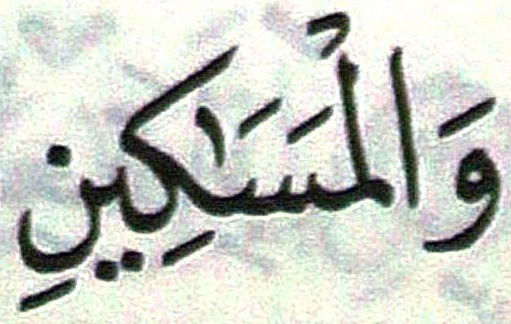 وَالْمَسَٰكِينِ